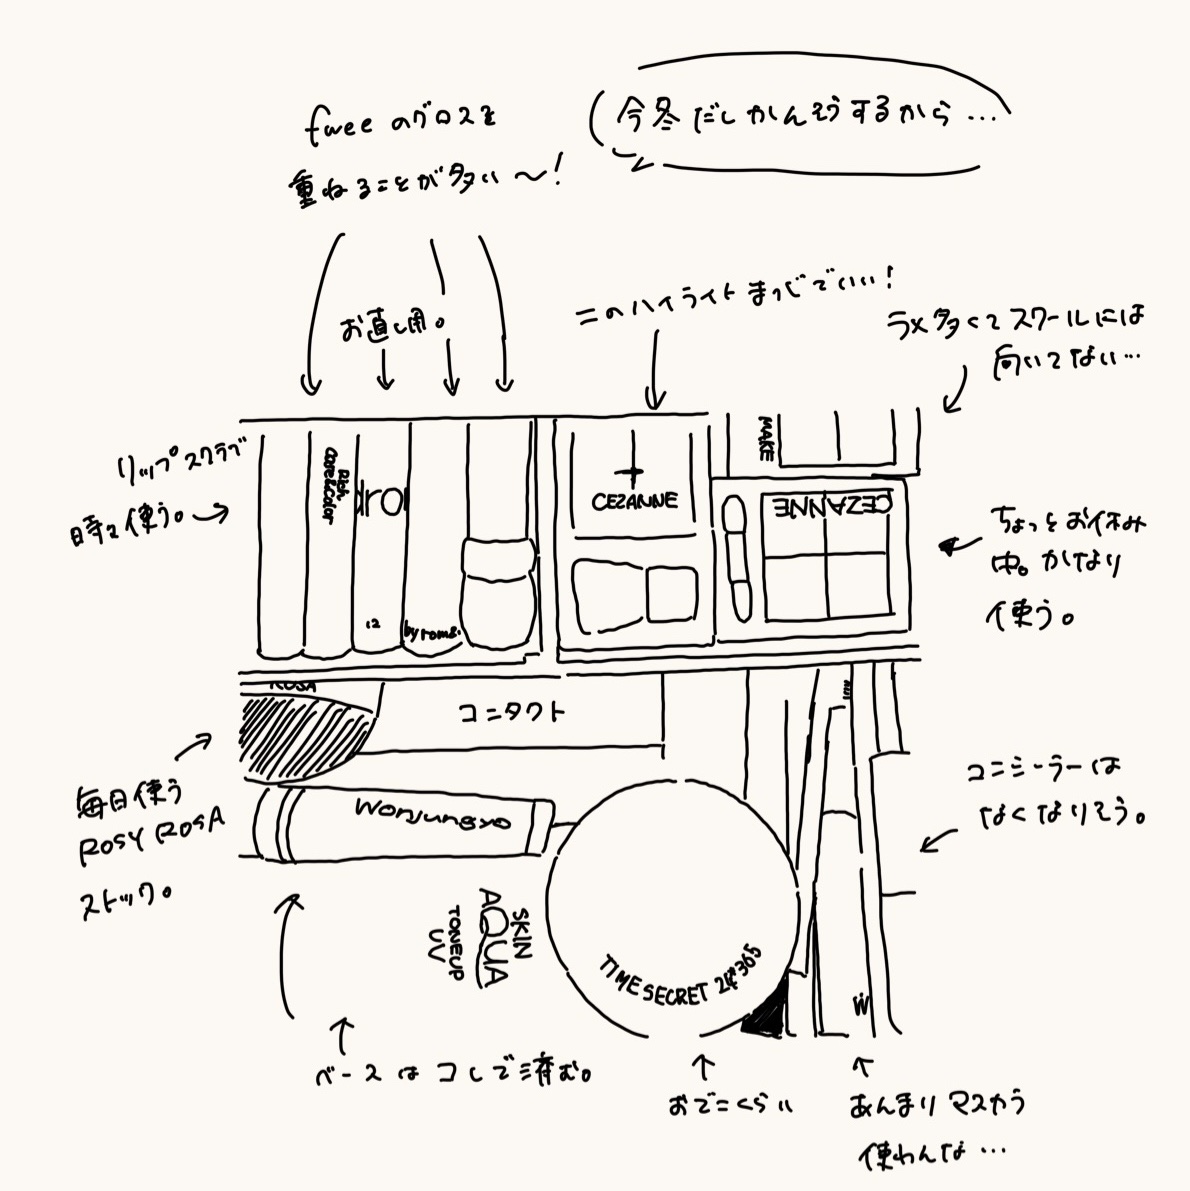 fweeのグロスを
重ねることが多い〜!
(今冬だしかんそうするから…
お直し用。
このハイライトまっじでいい!
ラメ多くてスクールには
向いてない…
リップスクラブ
時々使う。
MAKE
CEZANNE
CEZANNE
12
by rom&
ちょっとお休み
中。かなり
使う。
ROSA
コンタクト
毎日使う
ROSY ROSA
ストック。
Wonjungyo
コンシーラーは
なくなりそう。
SKIN
AQUA
TONEUP
UV
TIME SECRET 24*365
W
ベースはコレで済む。
おでこくらい
あんまりマスカラ
使わんな…